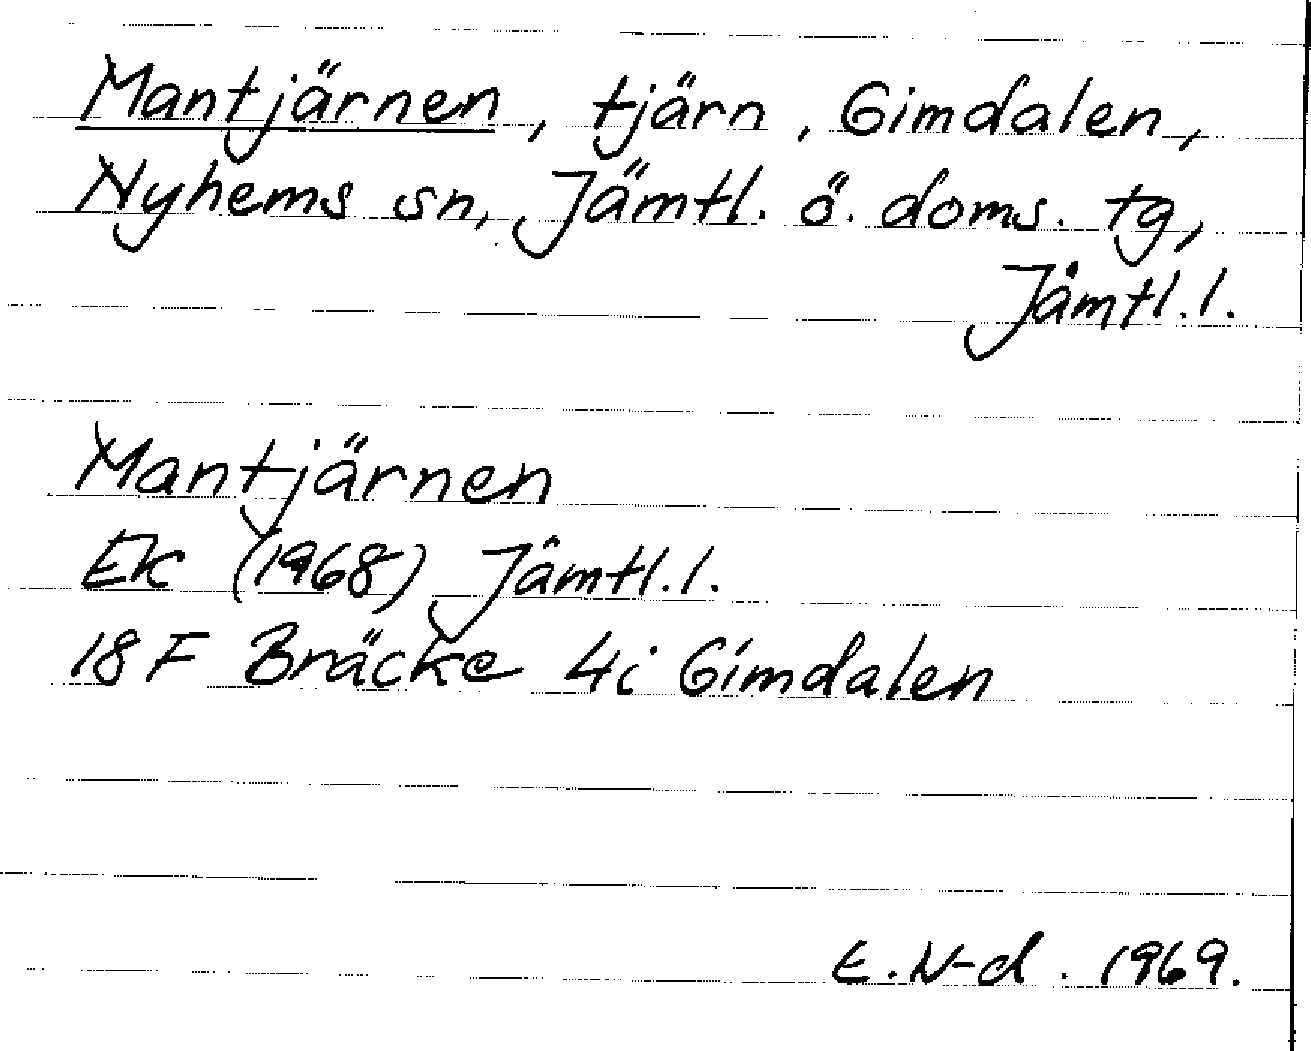 Mantjärnen, tjärn, Gimdalen,
Nyhems sn, Jämtl. ö. doms. tg,
Jämtl.l.
Mantjärnen
EK (1968) Jämtl.l.
18F Bräcke 4i Gimdalen
E.N-d. 1969.